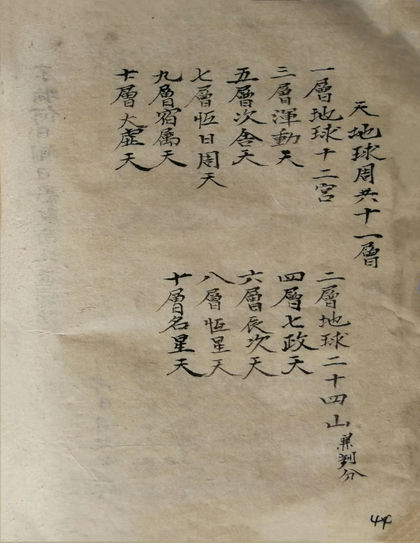 天地球周共十一層
一層地球十二宮
二層地球二十四山兼分
三層渾動天
四層七政天
五層次舍天
六層辰次天
七層恆日周天
八層恆星天
九層宿属天
十層名星天
十一層太虛天
44